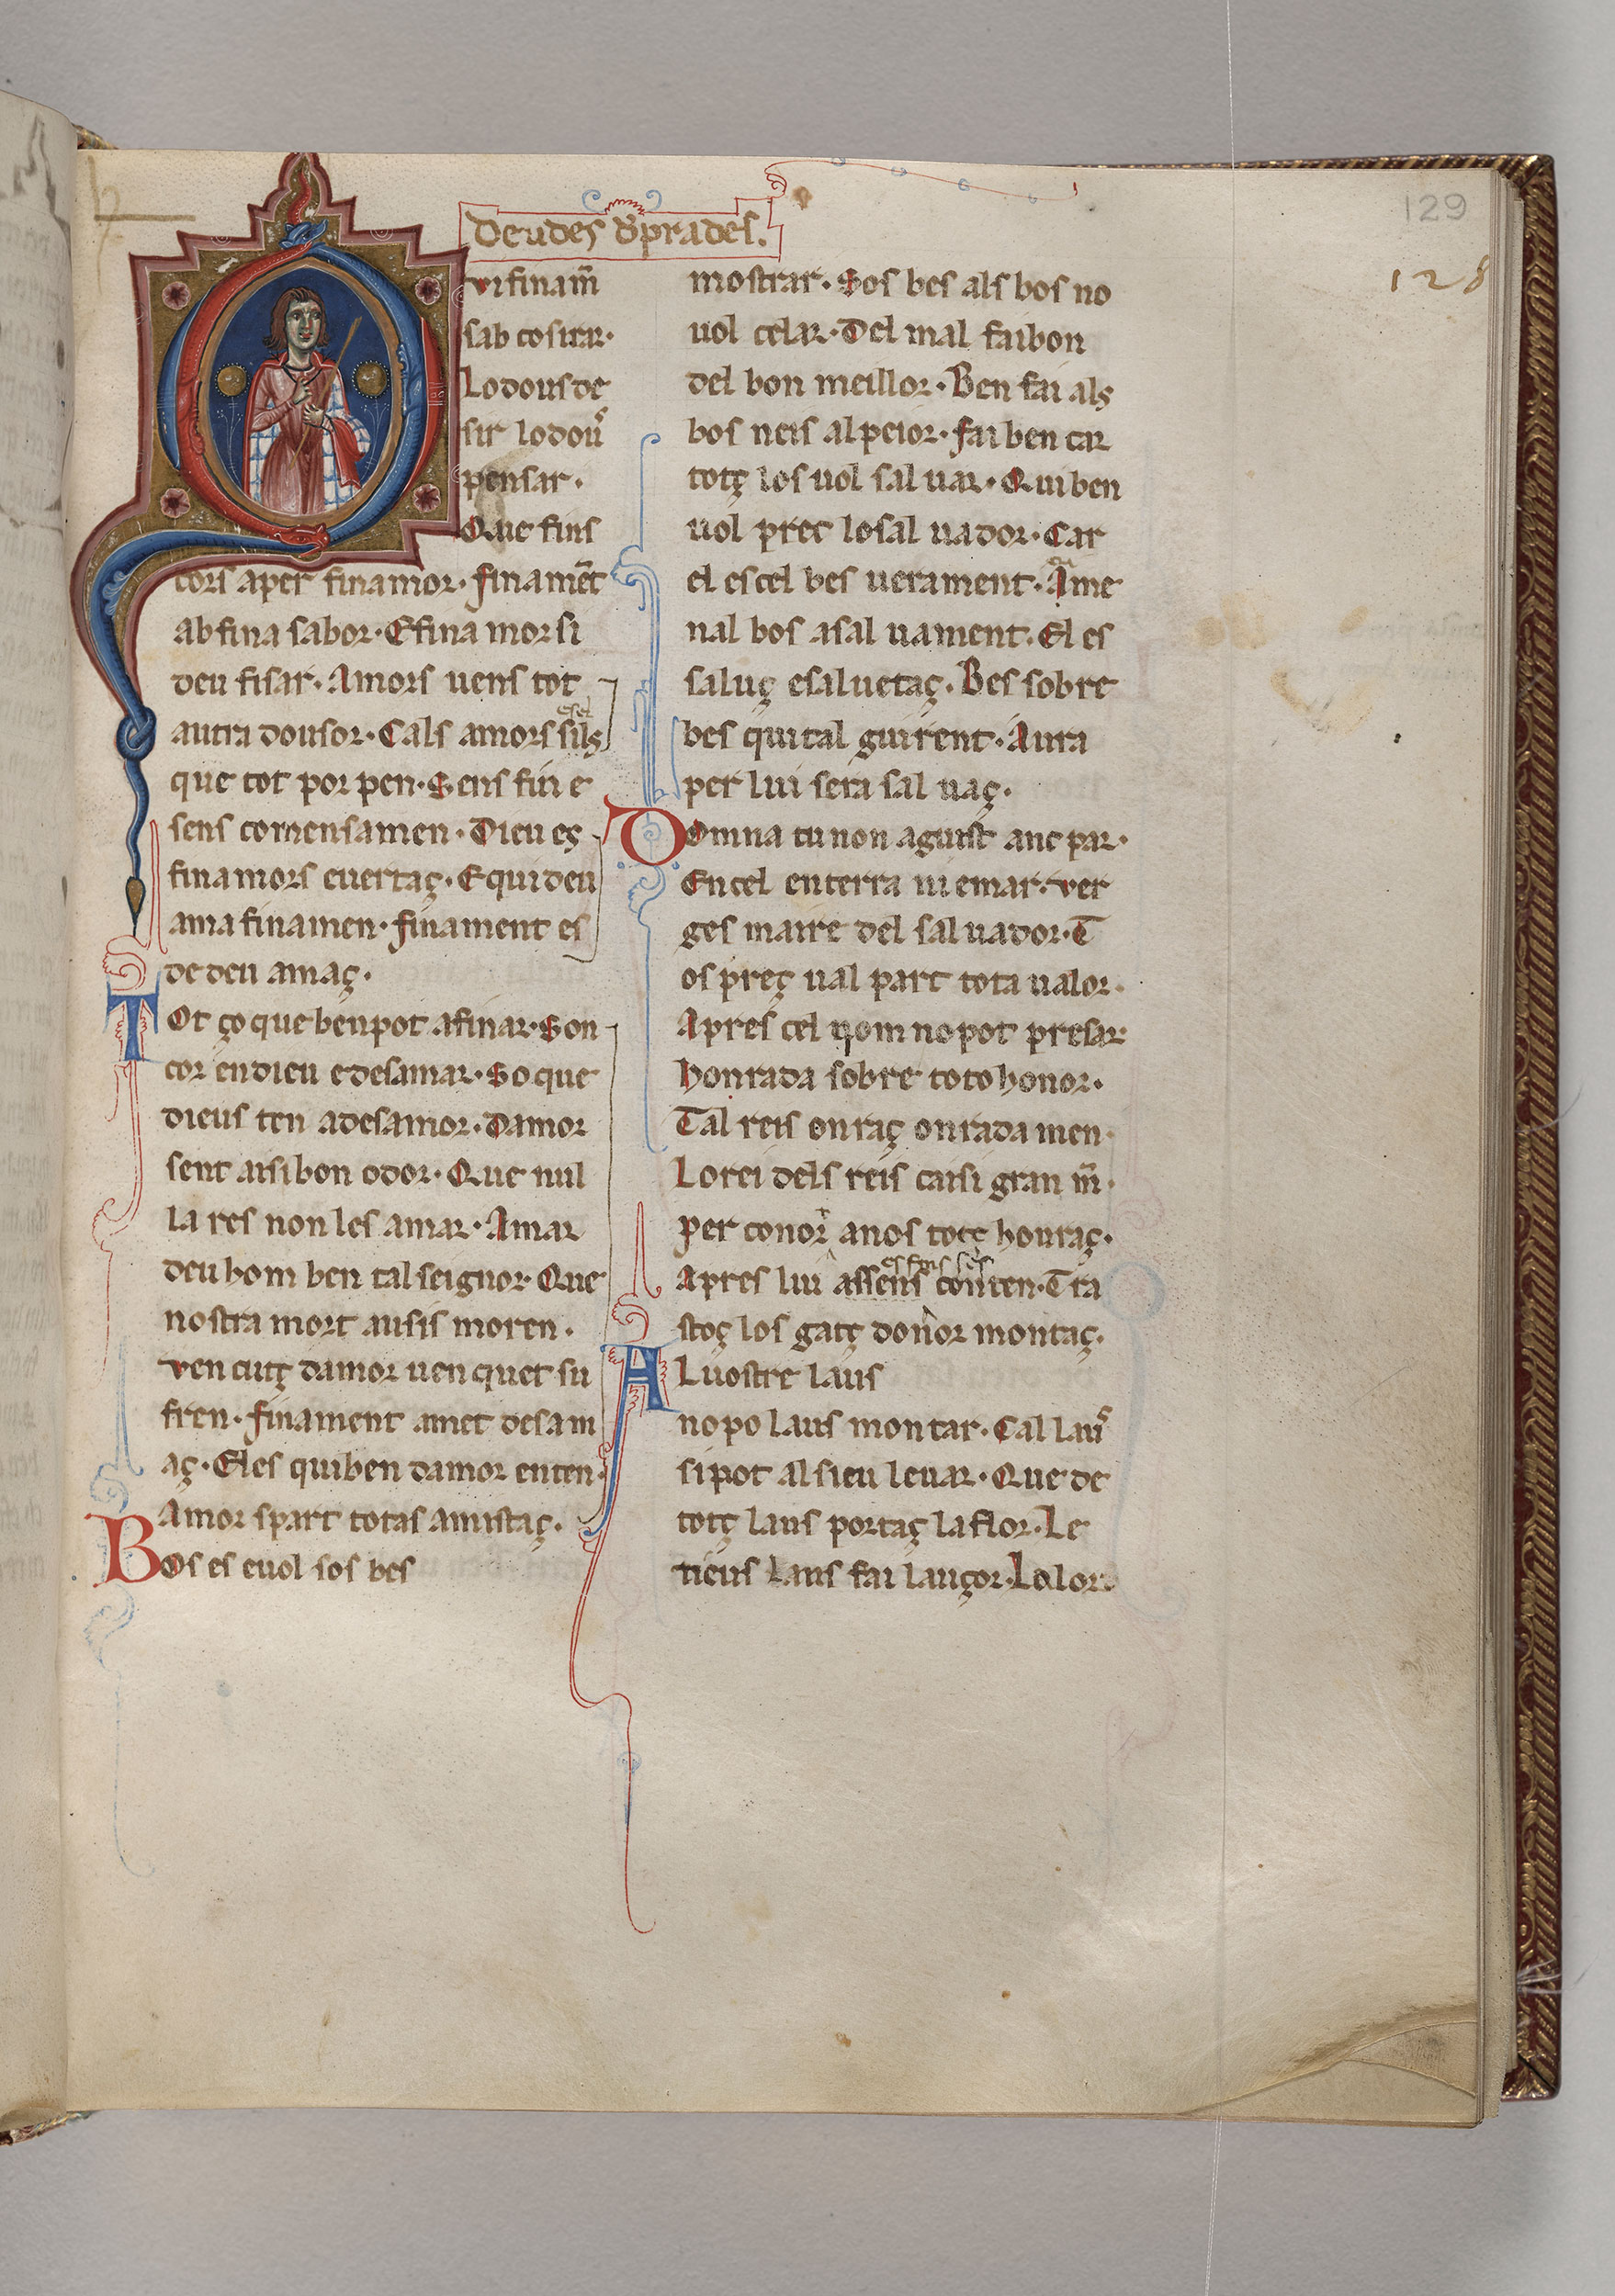 129
128
Deudes d'prades.
vi finam̃
sab cosirar·
Lo dous de
sir lo doũ
pensar·
Que fins
cors a per fin amor· fin amẽt
ab fina sabor· E fin amor si
deu fisar· Amors uens tot
autra dousor· Cals amors sils
que tot por pen· Sens fin e
sens comensamen· Dieu es
fin amors e uertaç· E qui deu
ama finamen· finament es
de deu amaç·
Tot ço que ben pot afinar· Son
cor en dieu e de s amar· So que
dieus ten a de s amor· Damor
sent aisi bon odor· Que nul
la res non les amar· Amar
deu hom ben tal seignor· Que
nostra mort ausis moren·
Ven cutç damor uenquet su
fren· finament amet desam
aç· El es qui ben damor enten·
Amors part totas amistaç·
Bos es e uol sos bes
mostrar· Sos bes als bos no
uol celar· Del mal fai bon
del bon meillor· Ben fai als
bos neis al peior· fai ben car
totç los uol sal uar· Qui ben
uol prec lo sal uador· Car
el es cel bes uerament· A me
nal bos a sal uament· El es
saluç e saluetaç· Bes sobre
bes qui tal guirent· Aura
per lui sera sal uaç·
Domna tu non aguist anc par·
En cel en terra ni e mar· ver
ges maire del sal uador· T
os preç ual part tota ualor·
Apres cel qom no pot presar
honrada sobre toto honor·
Tal reis onraç onrada men·
Lo rei dels reis car si gran m̃·
per t onor a nos totç honraç·
es fin ses
Apres lui assens conten· Tra
stoç los gatç donor montaç·
Al uostre laus
no po laus montar· Cal laũ
si pot al sieu leuar· Que de
totç laus portaç la flor· Le
tieus laus fai lauçor· La lor·